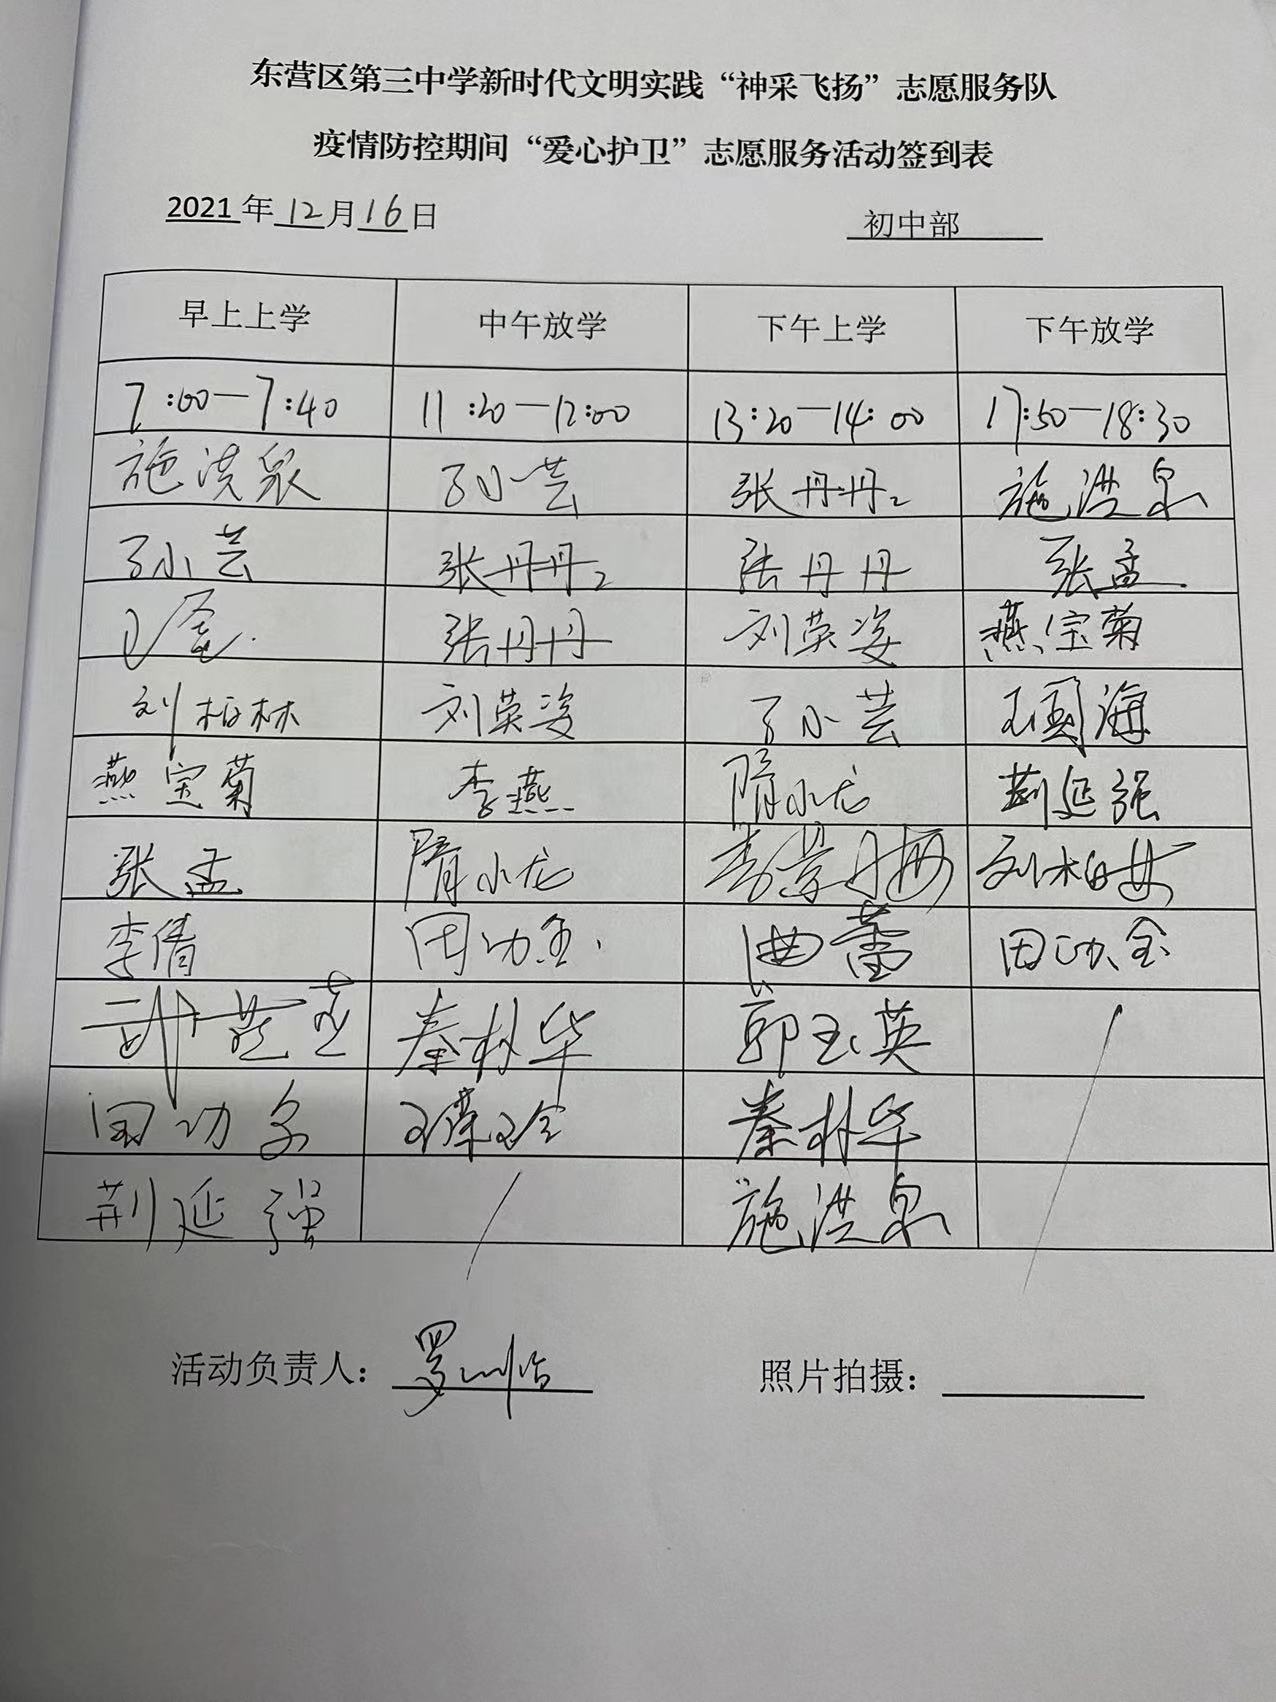 东营区第三中学新时代文明实践“神采飞扬”志愿服务队
疫情防控期间“爱心护卫”志愿服务活动签到表
2021年12月16日 初中部
早上上学 中午放学 下午上学 下午放学
7:00—7:40 11:20—12:00 13:20—14:00 17:50—18:30
施洪泉 孙小芸 张丹丹2 施洪泉
孙小芸 张丹丹2 张丹丹 张孟
张丹丹 刘英姿 燕宝菊
刘柏林 刘英姿 孙小芸 王国海
燕宝菊 李燕 隋小龙 荆延强
张孟 隋小龙 刘柏林
李倩 田功全 曲蕾 田功全
秦林华 郭玉英
田功全 秦林华
荆延强 施洪泉
活动负责人： 照片拍摄：